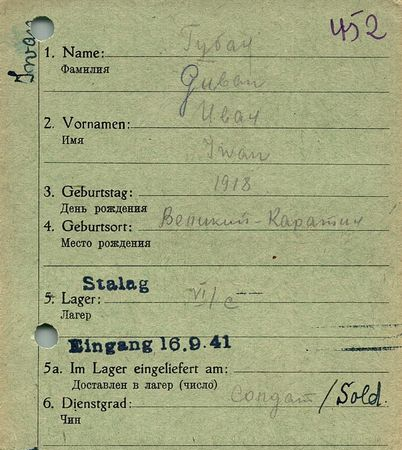 452
Iwan
1. Name: Губач
Фамилия
Guban
2. Vornamen: Иван
Имя
Iwan
3. Geburtstag: 1918
День рождения
4. Geburtsort: Великий-Каратин
Место рождения
Stalag
5. Lager: VI/c
Лагерь
Eingang 16.9.41
5a. Im Lager eingeliefert am:
Доставлен в лагерь (число)
6. Dienstgrad: Солдат/Sold.
Чин